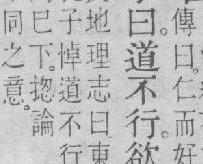 傳曰。仁而好
曰。道不行。欲
地理志曰東
子悼道不行
巳下。揔論
同之意。